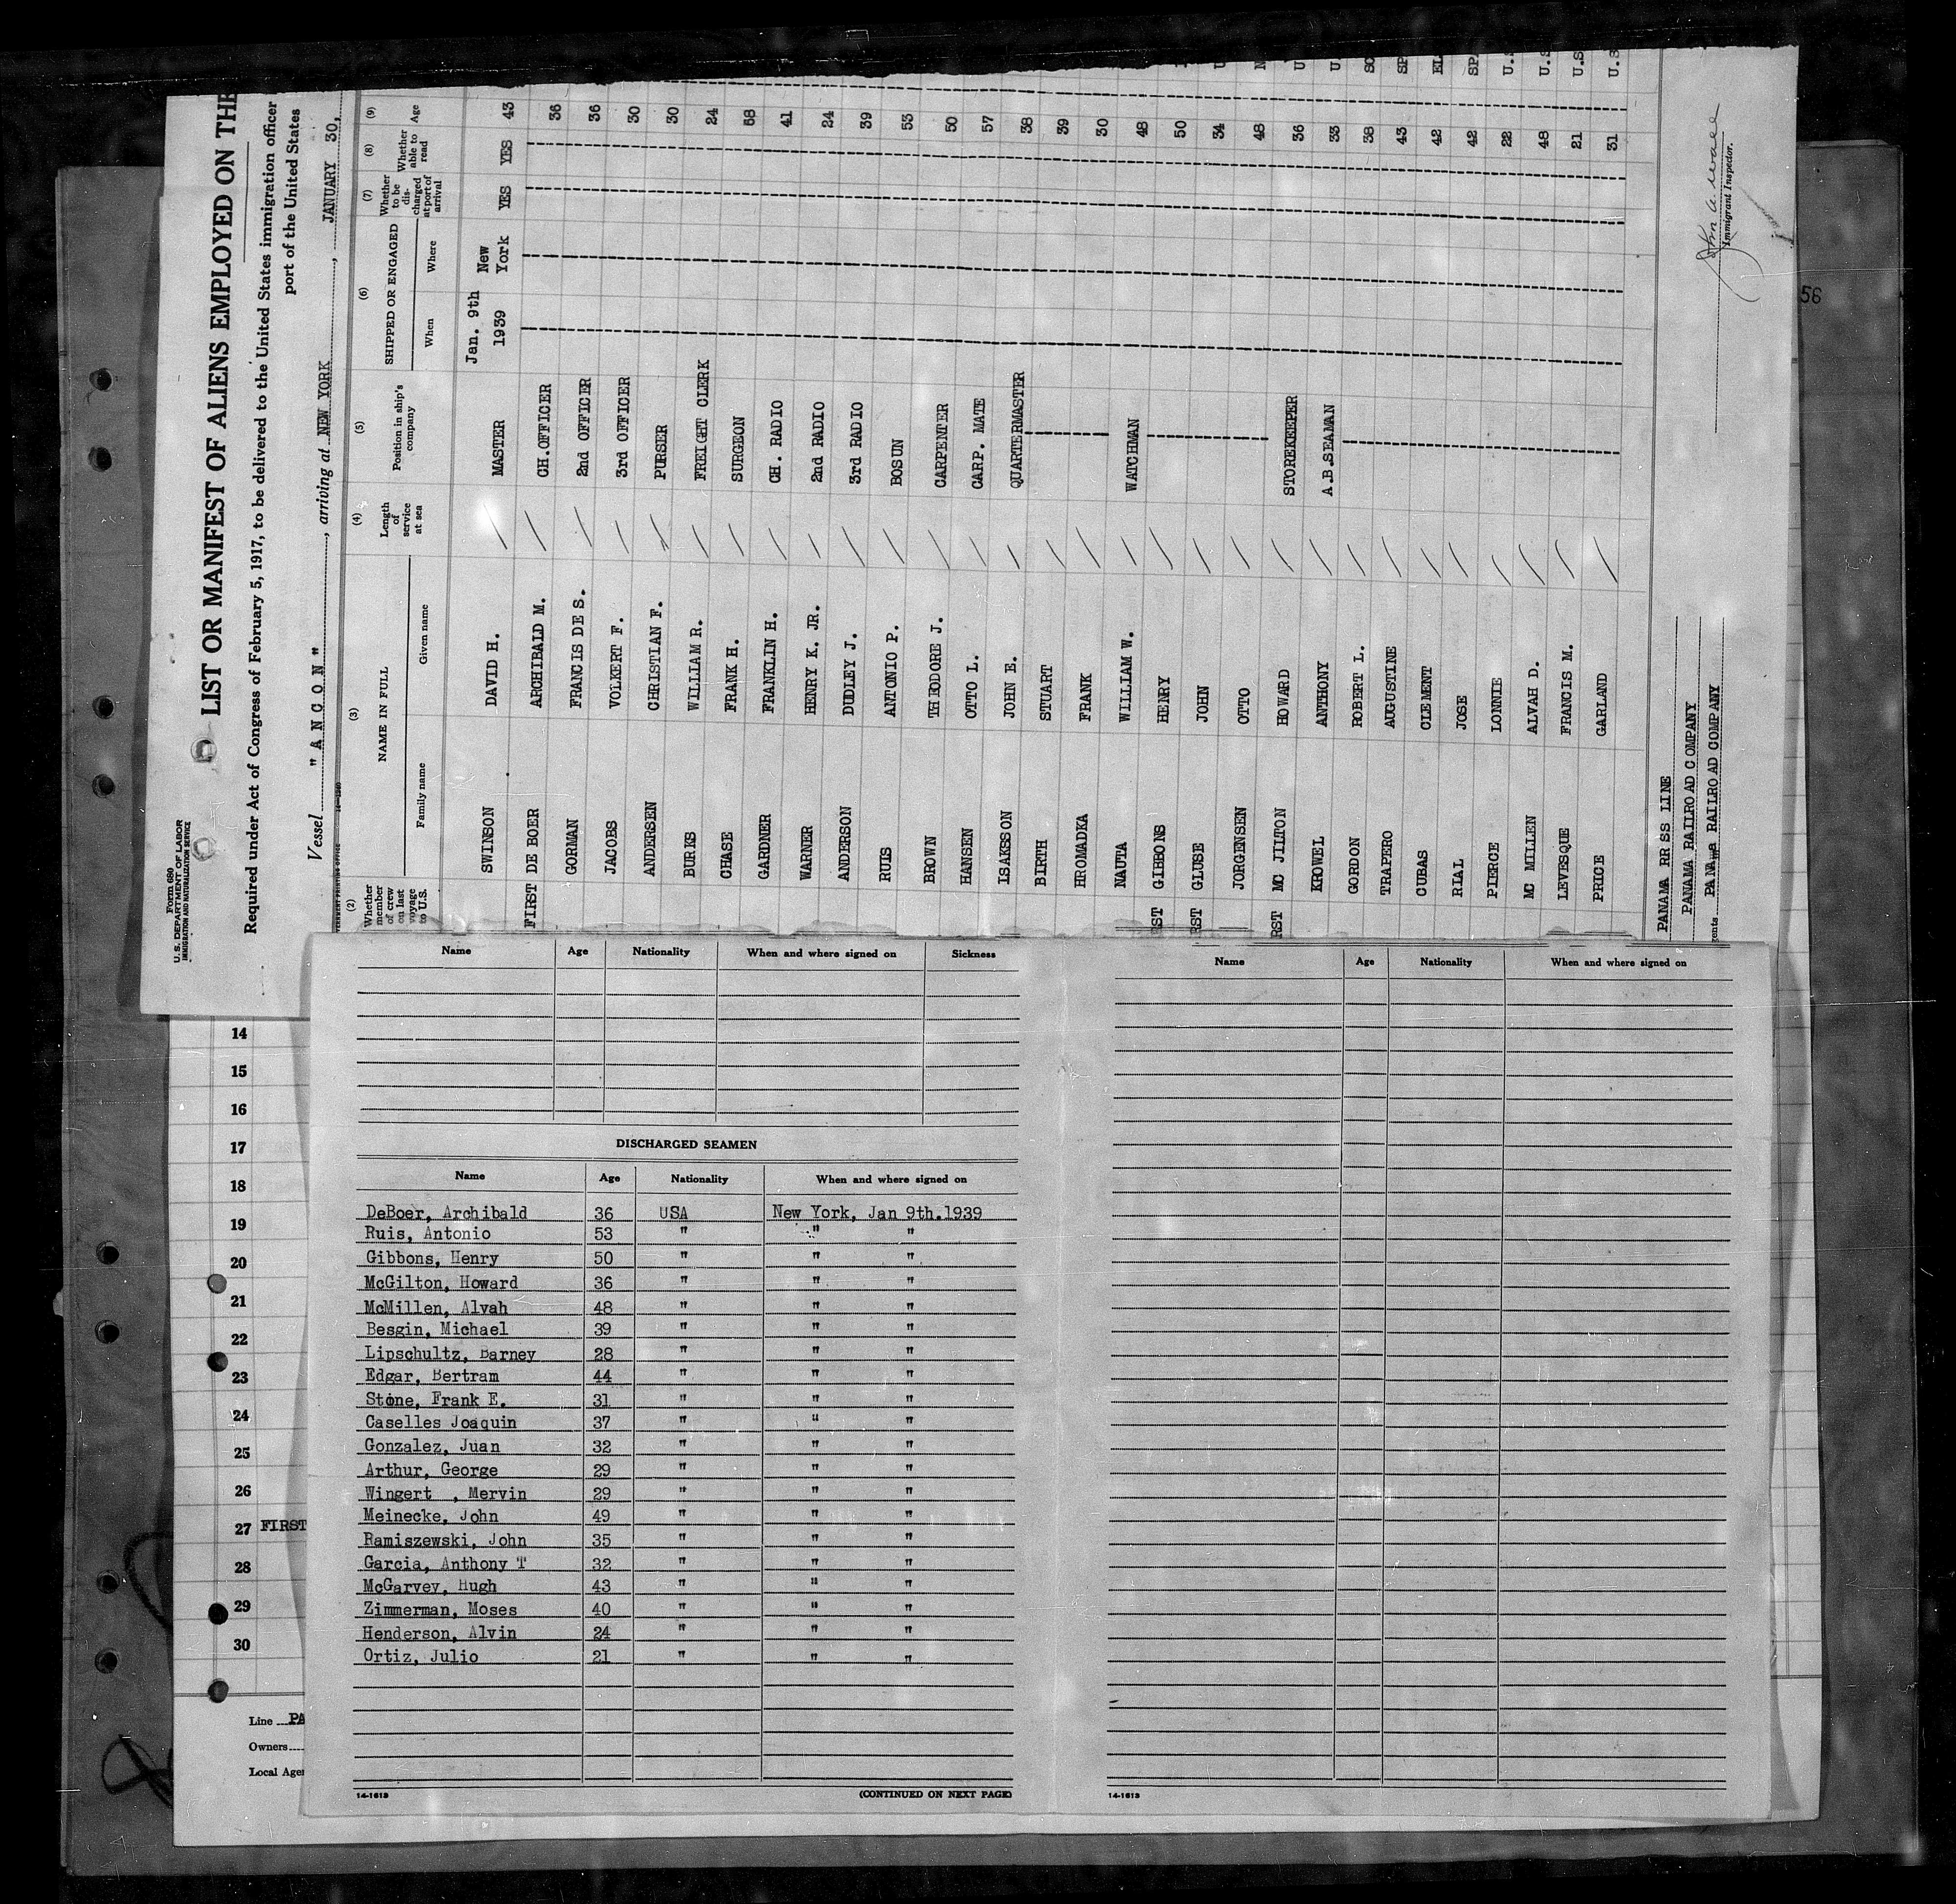 Form 680
U. S. DEPARTMENT OF LABOR
IMMIGRATION AND NATURALIZATION SERVICE
LIST OR MANIFEST OF ALIENS EMPLOYED ON THE
Required under Act of Congress of February 5, 1917, to be delivered to the United States immigration officer
port of the United States
Vessel "ANCON", arriving at NEW YORK, JANUARY 30,
(2) (3) (4) (5) (6) (7) (8) (9)
Whether member of crew on last voyage to U.S. NAME IN FULL Length of service at sea Position in ship's company SHIPPED OR ENGAGED Whether to be discharged at port of arrival Whether able to read Age
Family name Given name When Where
SWINSON DAVID H. MASTER Jan. 9th 1939 New York YES YES 43
FIRST DE BOER ARCHIBALD M. CH.OFFICER 36
GORMAN FRANCIS DE S. 2nd OFFICER 36
JACOBS VOLKERT F. 3rd OFFICER 30
ANDERSEN CHRISTIAN F. PURSER 30
BURKS WILLIAM R. FREIGHT CLERK 24
CHASE FRANK H. SURGEON 68
GARDNER FRANKLIN H. CH. RADIO 41
WARNER HENRY K. JR. 2nd RADIO 24
ANDERSON DUDLEY J. 3rd RADIO 39
RUIS ANTONIO P. BOSUN 53
BROWN THEODORE J. CARPENTER 50
HANSEN OTTO L. CARP. MATE 57
ISAKSSON JOHN E. QUARTERMASTER 38
BIRTH STUART 39
HROMADKA FRANK 30
NAUTA WILLIAM W. WATCHMAN 48
RST GIBBONS HENRY 50
RST GLUSE JOHN 34
JORGENSEN OTTO 48
RST MC JILTON HOWARD STOREKEEPER 36
KROWEL ANTHONY A.B.SEAMAN 33
GORDON ROBERT L. 38
TRAPERO AUGUSTINE 43
CUBAS CLEMENT 42
RIAL JOSE 42
PIERCE LONNIE 22
MC MILLEN ALVAH D. 48
LEVESQUE FRANCIS M. 21
PRICE GARLAND 31
PANAMA RR SS LINE
PANAMA RAILROAD COMPANY
gents PANAMA RAILROAD COMPANY
Immigrant Inspector.
56
14
15
16
17
18
19
20
21
22
23
24
25
26
27 FIRST
28
29
30
Line PA
Owners
Local Age
Name Age Nationality When and where signed on Sickness
DISCHARGED SEAMEN
Name Age Nationality When and where signed on
DeBoer, Archibald 36 USA New York, Jan 9th.1939
Ruis, Antonio 53 " " "
Gibbons, Henry 50 " " "
McGilton, Howard 36 " " "
McMillen, Alvah 48 " " "
Besgin, Michael 39 " " "
Lipschultz, Barney 28 " " "
Edgar, Bertram 44 " " "
Stone, Frank E. 31 " " "
Caselles Joaquin 37 " " "
Gonzalez, Juan 32 " " "
Arthur, George 29 " " "
Wingert , Mervin 29 " " "
Meinecke, John 49 " " "
Ramiszewski, John 35 " " "
Garcia, Anthony T 32 " " "
McGarvey, Hugh 43 " " "
Zimmerman, Moses 40 " " "
Henderson, Alvin 24 " " "
Ortiz, Julio 21 " " "
14-1613 (CONTINUED ON NEXT PAGE)
Name Age Nationality When and where signed on
14-1613